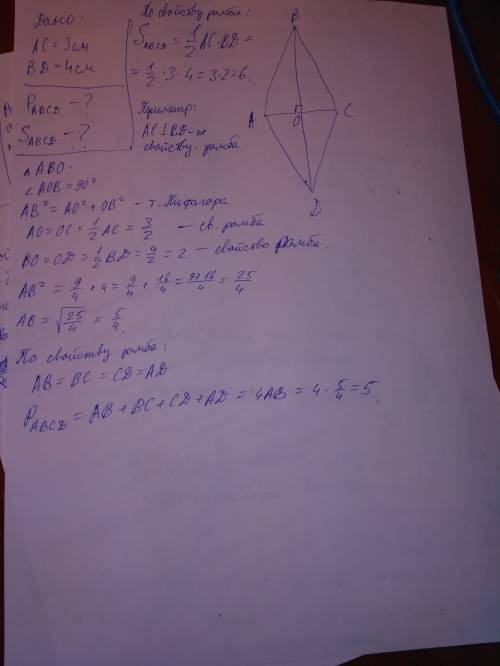 Дано:
AC = 3см
BD = 4см
P ABCD - ?
S ABCD - ?
По свойству ромба:
S ABCD = 1/2 AC·BD =
= 1/2 · 3 · 4 = 3·2 = 6.
Периметр:
AC ⊥ BD - по
свойству ромба.
B
A
O
C
D
△ ABO:
∠ AOB = 90°
AB² = AO² + OB² - т. Пифагора
AO = OC = 1/2 AC = 3/2 - св. ромба
BO = OD = 1/2 BD = 4/2 = 2 - свойство ромба.
AB² = 9/4 + 4 = 9/4 + 16/4 = 9+16/4 = 25/4
AB = √25/4 = 5/4.
По свойству ромба:
AB = BC = CD = AD
P ABCD = AB + BC + CD + AD = 4AB = 4 · 5/4 = 5.